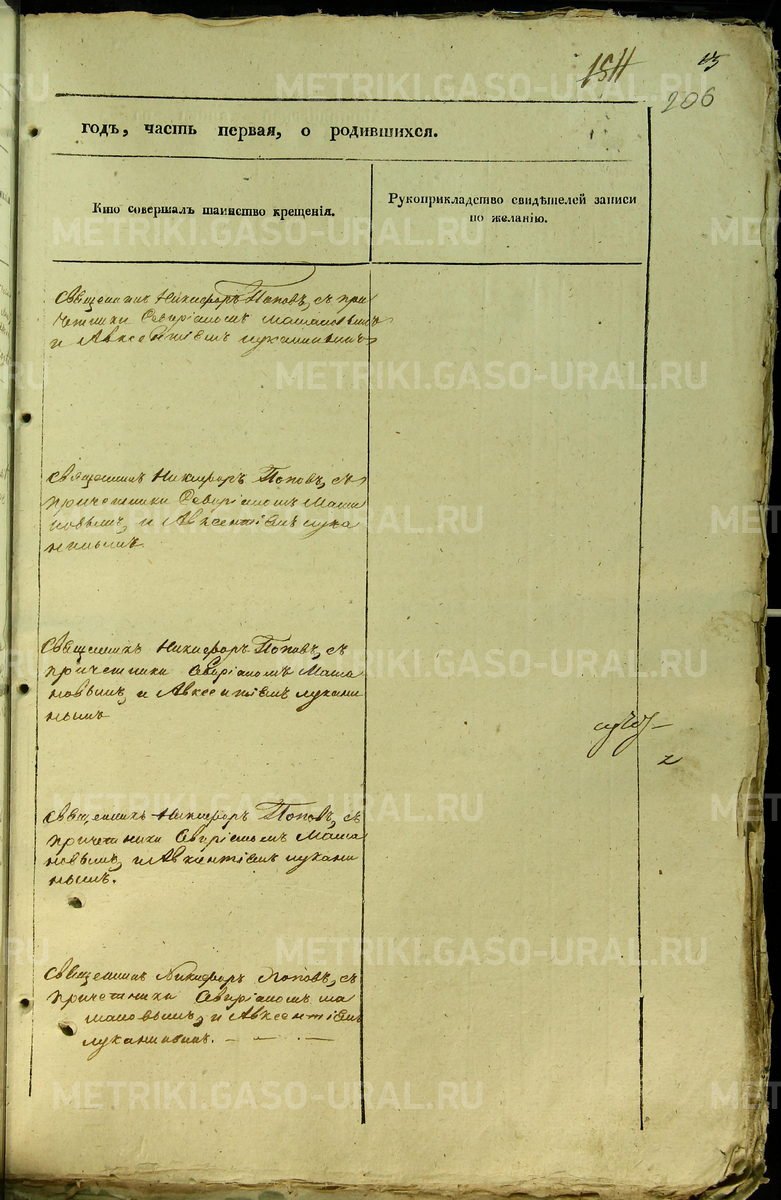 1511
13
206
годъ, часть первая, о родившихся.
Кто совершалъ таинство крещенія.
Рукоприкладство свидѣтелей записи
по желанію.
Священникъ Никифоръ Поповъ, съ при
четники Северіаномъ Машановымъ
и Авксентіемъ Луканинымъ
Священникъ Никифоръ Поповъ, съ
причетники Северіаномъ Маша
новымъ, и Авксентіемъ Лука
нинымъ
Священникъ Никифоръ Поповъ, съ
причетники Северіаномъ Маша
новымъ, и Авксентіемъ Лукани
нымъ
Священникъ Никифоръ Поповъ, съ
причетники Северіаномъ Маша
новымъ, и Авксентіемъ Лукани
нымъ.
Священникъ Никифоръ Поповъ, съ
причетники Северіаномъ Ма
шановымъ, и Авксентіемъ
Луканинымъ.
METRIKI.GASO-URAL.RU